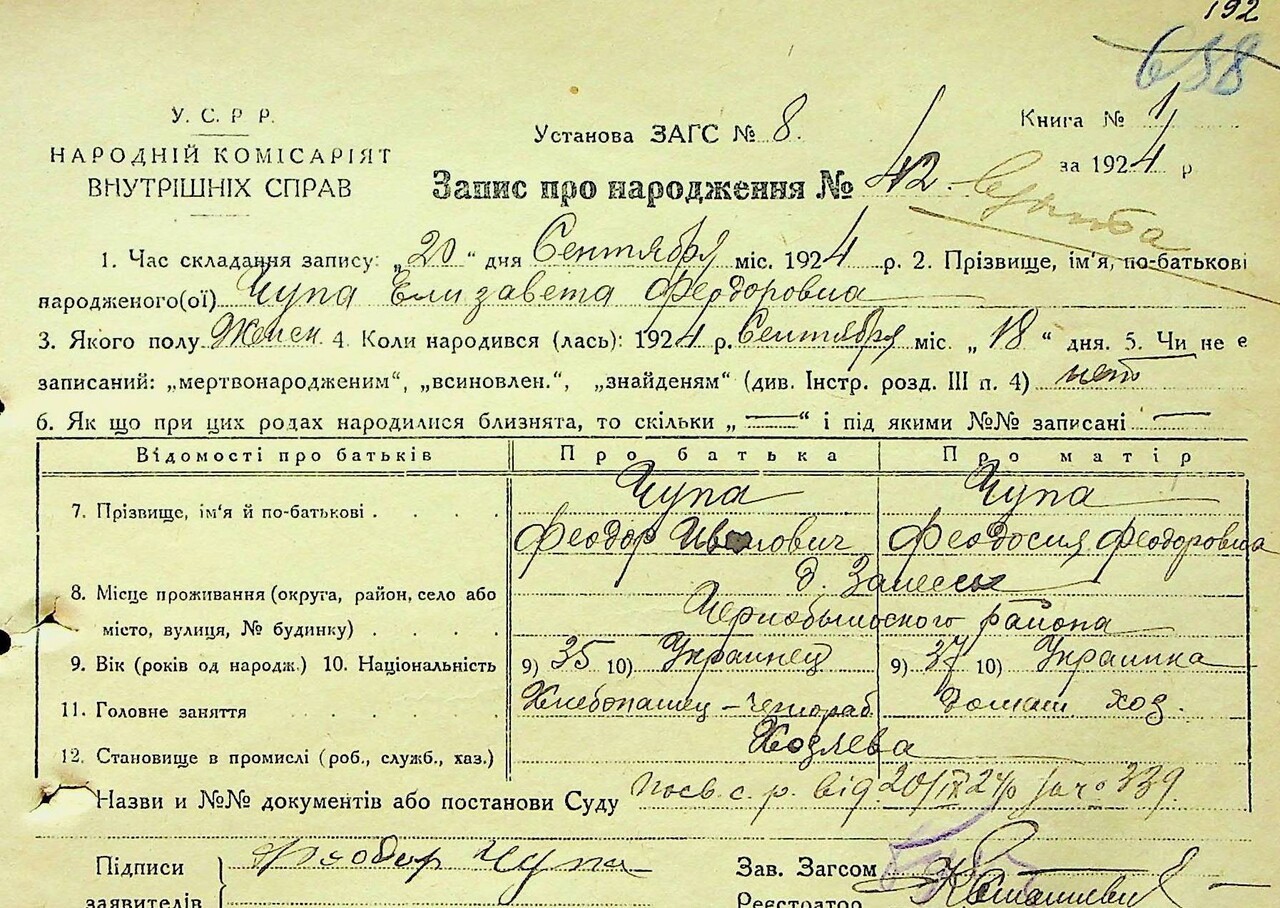 192
698
У. С. Р Р.
НАРОДНІЙ КОМІСАРІЯТ
ВНУТРІШНІХ СПРАВ
Установа ЗАГС № 8.
Книга № 1
за 1924 р
Запис про народження № 42
1. Час складання запису: „20“ дня Сентября міс. 1924 р. 2. Прізвище, ім'я, по-батькові
народженого(ої) Чупа Елизавета Феодоровна
3. Якого полу Женск. 4. Коли народився (лась): 1924 р. Сентября міс. „18“ дня. 5. Чи не є
записаний: „мертвонародженим“, „всиновлен.“, „знайденям“ (див. Інстр. розд. III п. 4) нет
6. Як що при цих родах народилися близнята, то скільки „ — “ і під якими №№ записані —
Відомості про батьків Про батька Про матір
7. Прізвище, ім'я й по-батькові . . . . Чупа Феодор Иванович Чупа Феодосия Феодоровна
8. Місце проживання (округа, район, село або д. Залесье
місто, вулиця, № будинку) . . . . Чернобыльского района
9. Вік (років од народж.) 10. Національність 9) 35 10) Украинец 9) 37 10) Украинка
11. Головне заняття . . . . . Хлебопашец - Домаш. хоз.
12. Становище в промислі (роб., служб., хаз.)
Назви и №№ документів або постанови Суду Посв. с. р. від 20/IX 24 р за ч. 339.
Підписи Феодор Чупа Зав. Загсом
заявителів Реєстратор